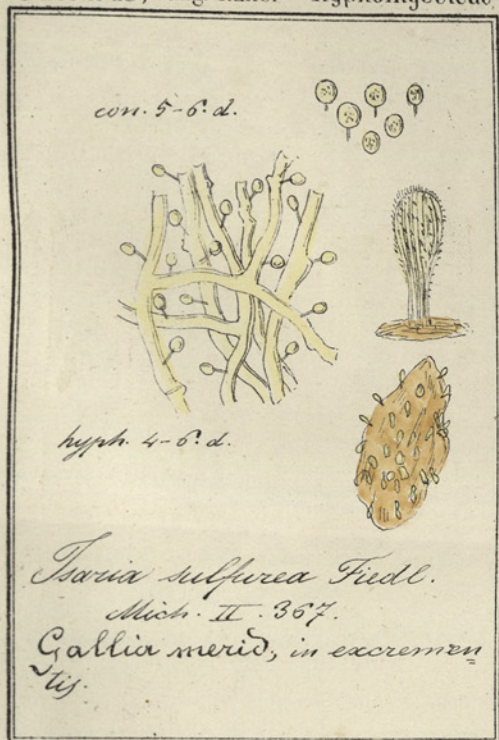 con. 5-6. d.
hyph. 4-6. d.
Isaria sulfurea Fiedl.
Mich. II. 367.
Gallia merid., in excremen=
tis.